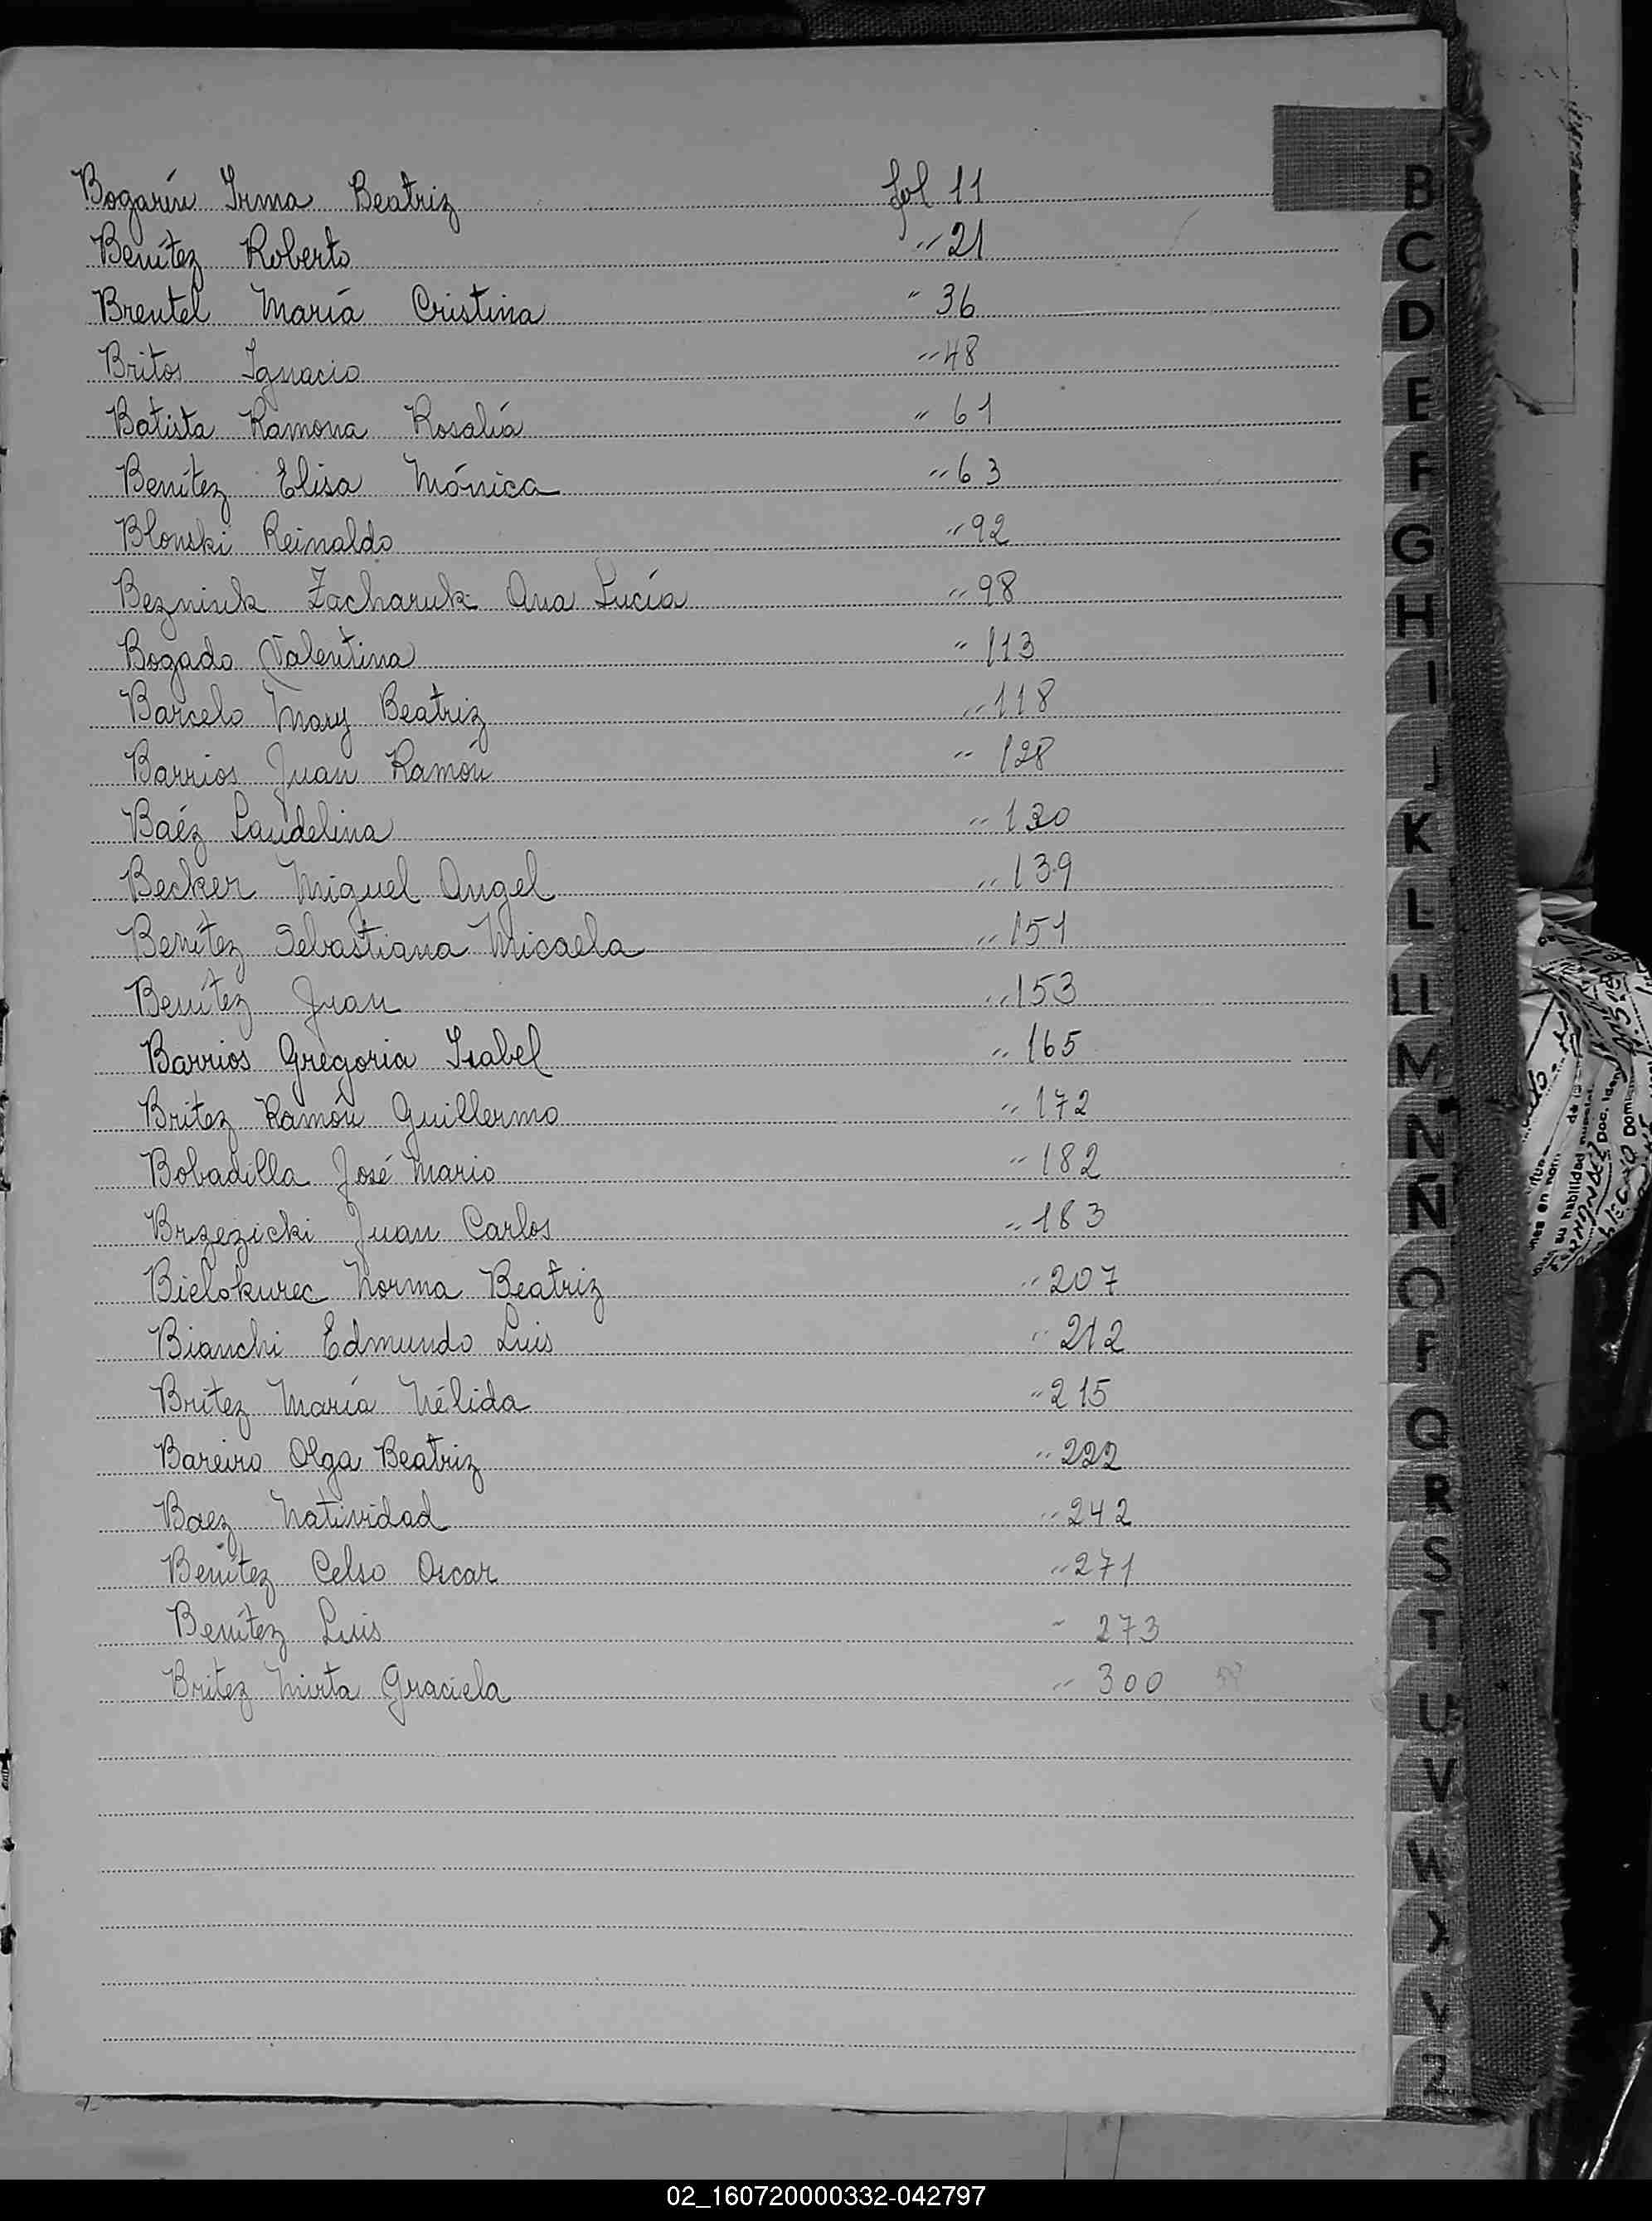 Bogarín Irma Beatriz fol 11
Benítez Roberto " 21
Brentel María Cristina " 36
Britos Ignacio " 48
Batista Ramona Rosalía " 61
Benítez Elisa Mónica " 63
Blonski Reinaldo " 92
Bezniuk Zacharuk Ana Lucía " 98
Bogado Valentina " 113
Barcelo Mary Beatriz " 118
Barrios Juan Ramón " 128
Baéz Laudelina " 130
Becker Miguel Angel " 139
Benítez Sebastiana Micaela " 151
Benítez Juan " 153
Barrios Gregoria Isabel " 165
Britez Ramón Guillermo " 172
Bobadilla José Mario " 182
Brzezicki Juan Carlos " 183
Bielokurec Norma Beatriz " 207
Bianchi Edmundo Luis " 212
Britez María Nélida " 215
Bareiro Olga Beatriz " 222
Baez Natividad " 242
Benítez Celso Oscar " 271
Benítez Luis " 273
Britez Mirta Graciela " 300
B
C
D
E
F
G
H
I
J
K
L
LL
M
N
Ñ
O
P
Q
R
S
T
U
V
W
X
Y
Z
su habilidad
Doc. Iden
02_160720000332-042797